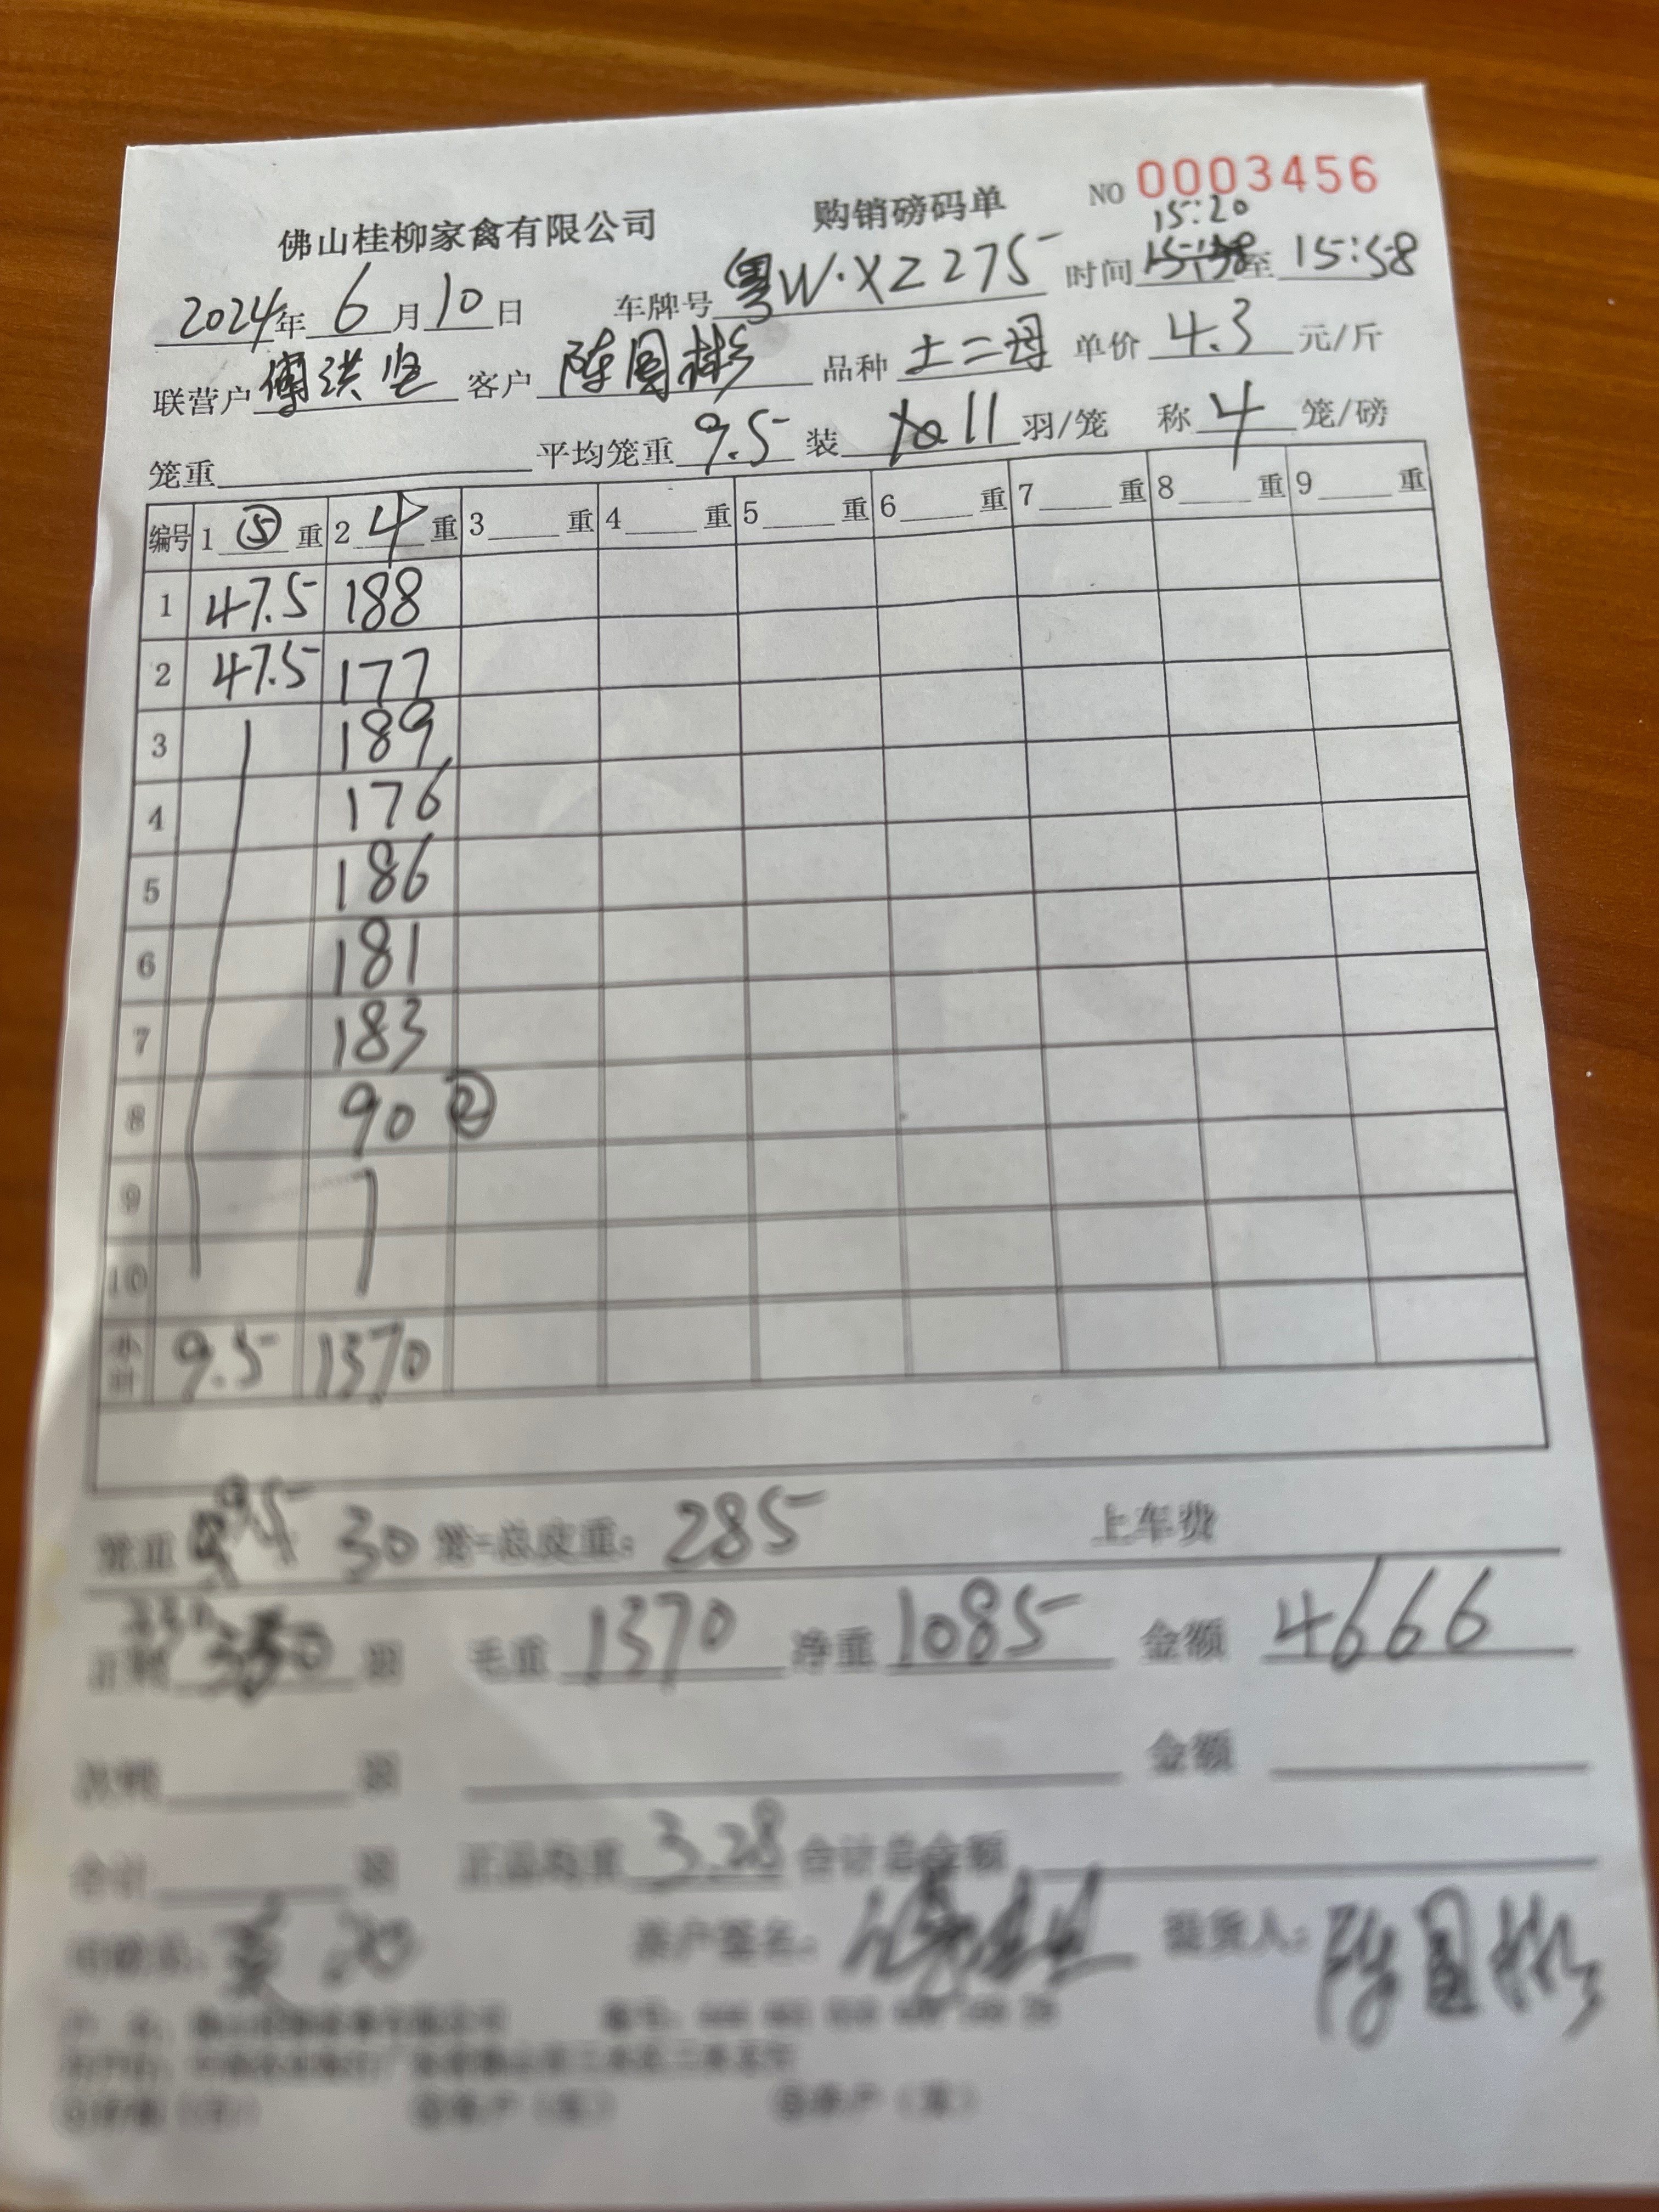 佛山桂柳家禽有限公司 购销磅码单 NO 0003456
15:20
2024年6月10日 车牌号 粤W·XZ275 时间 至 15:58
联营户 傅洪坚 客户 陈国彬 品种 土二母 单价 4.3 元/斤
笼重 平均笼重 9.5 装 11 羽/笼 称 4 笼/磅
编号 1 ⑤ 重 2 4 重 3 重 4 重 5 重 6 重 7 重 8 重 9 重
1 47.5 188
2 47.5 177
3 189
4 176
5 186
6 181
7 183
8 90 ②
9
10
小计 9.5 1370
笼重 9.5 30 笼=总皮重: 285 上车费
正鸭 330 羽 毛重 1370 净重 1085 金额 4666
次鸭 羽 金额
合计 羽 正品均重 3.28 合计总金额
客户签名: 提货人: 陈国彬